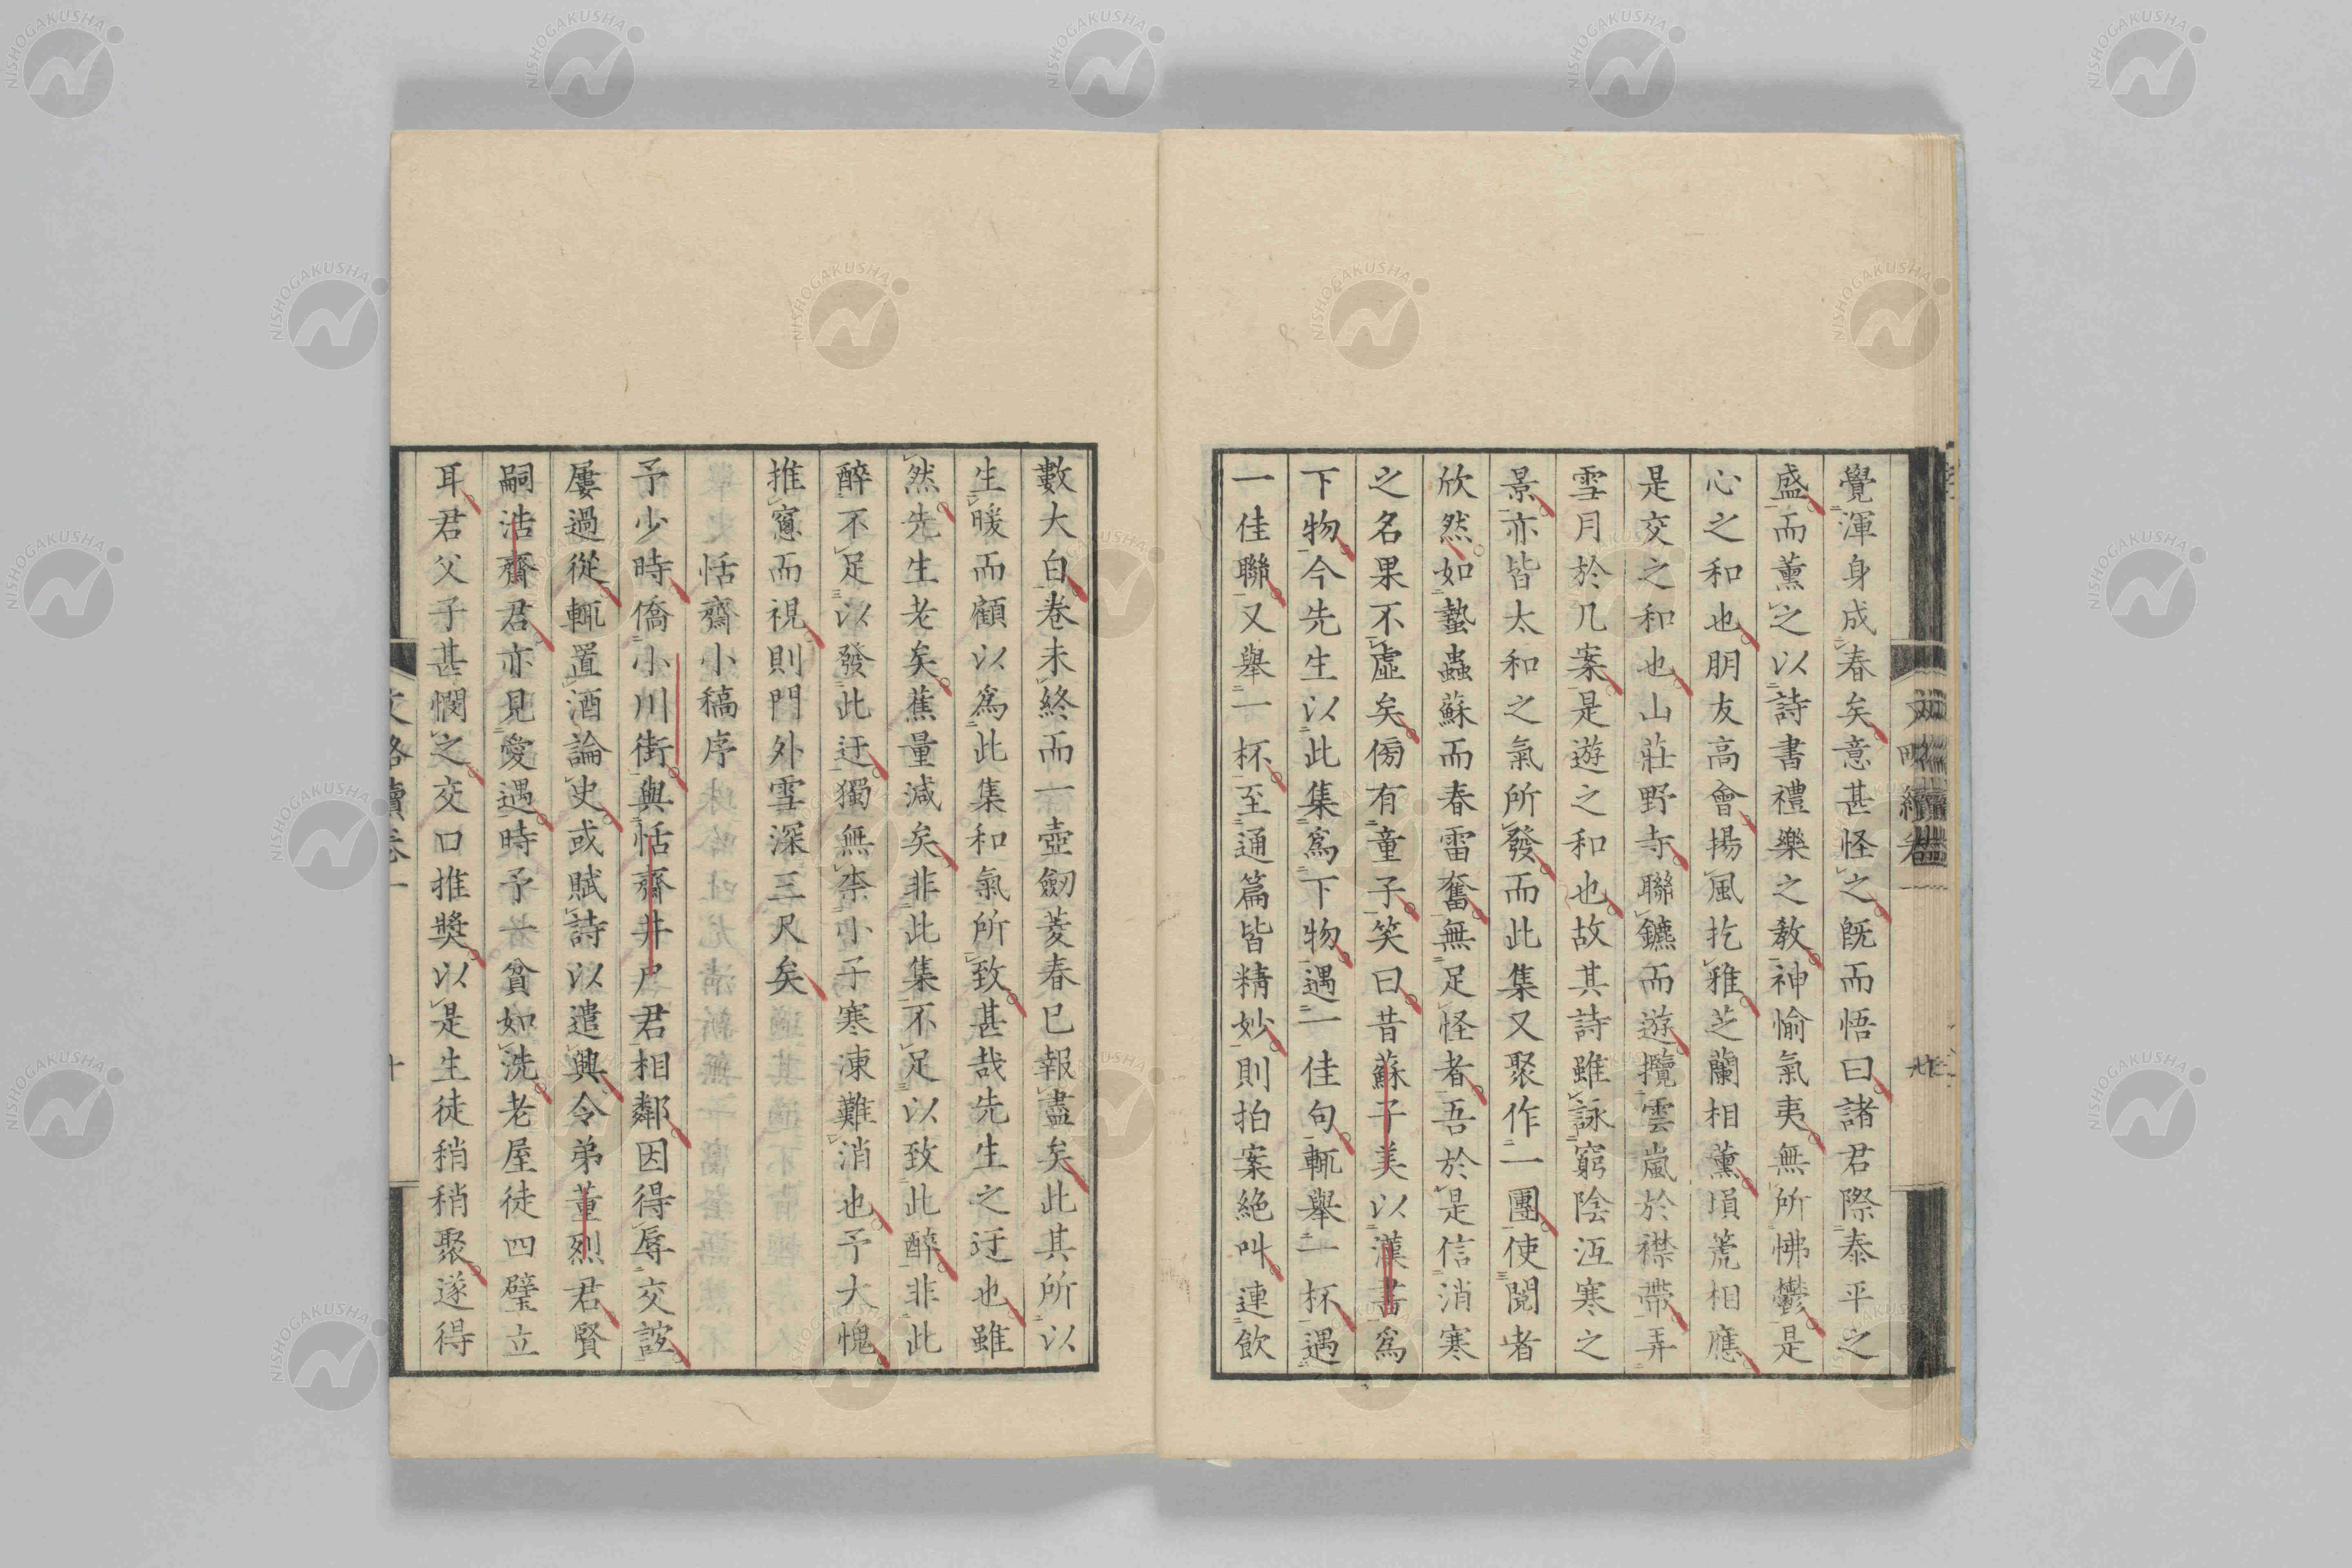 覺渾身成春矣意甚怪之旣而悟曰諸君際泰平之
盛而薰之以詩書禮樂之教神愉氣夷無所怫鬱是
心之和也朋友高會揚風扢雅芝蘭相薰塤箎相應
是交之和也山莊野寺聯鑣而遊攬雲嵐於襟帶弄
雪月於几案是遊之和也故其詩雖詠窮陰沍寒之
景亦皆太和之氣所發而此集又聚作一團使閱者
欣然如蟄蟲蘇而春雷奮無足怪者吾於是信消寒
之名果不虛矣傍有童子笑曰昔蘇子美以漢書爲
下物今先生以此集爲下物遇一佳句輒舉一杯遇
一佳聯又舉一杯至通篇皆精妙則拍案絕叫連飲
數大白卷未終而一壺劒菱春已報盡矣此其所以
生暖而顧以爲此集和氣所致甚哉先生之迂也雖
然先生老矣蕉量減矣非此集不足以致此醉非此
醉不足以發此迂獨無柰小子寒凍難消也予大愧
推窻而視則門外雪深三尺矣
恬齋小稿序
予少時僑小川街與恬齋井戶君相鄰因得辱交誼
屢過從輒置酒論史或賦詩以遣興令弟董烈君賢
嗣浩齋君亦見愛遇時予貧如洗老屋徒四壁立
耳君父子甚憫之交口推奬以是生徒稍稍聚遂得
NISHOGAKUSHA